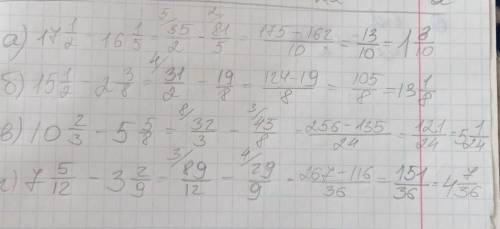 а) 17 1/2 - 16 1/5 = 5/ 35/2 - 2/ 81/5 = 175-162/10 = 13/10 = 1 3/10
б) 15 1/2 - 2 3/8 = 4/ 31/2 - 19/8 = 124-19/8 = 105/8 = 13 1/8
в) 10 2/3 - 5 5/8 = 8/ 32/3 - 3/ 45/8 = 256-135/24 = 121/24 = 5 1/24
г) 7 5/12 - 3 2/9 = 3/ 89/12 - 4/ 29/9 = 267-116/36 = 151/36 = 4 7/36